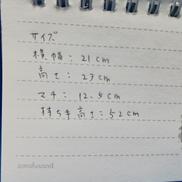 サイズ
横幅：21cm
高さ：23cm
マチ：12.5cm
持ち手高さ：52cm